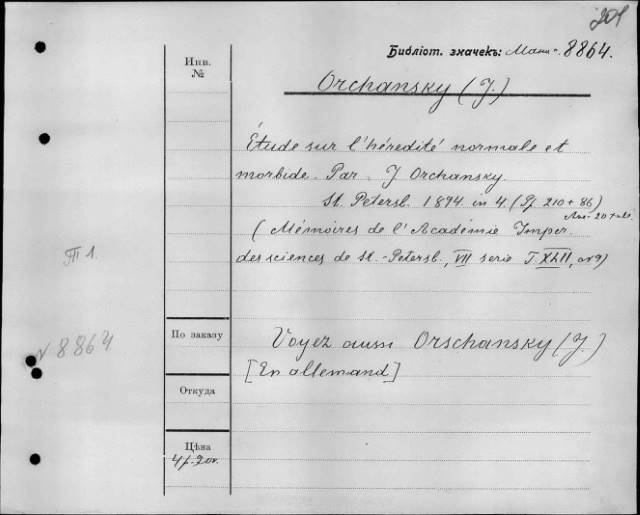 201
Библіот. значекъ: Мани. 8864.
Инв.
№
Orchansky (J.)
Étude sur l'hérédité normale et
morbide. Par J Orchansky.
St. Petersb. 1894. in 4. (Pp. 210 + 86)
(Mémoires de l'Académie Imper.
des sciences de St.-Petersb., VII serie T. XLII, № 9)
III 1.
№ 8864
По заказу
Voyez aussi Orschansky (J.)
[En allemand]
Откуда
Цѣна
4 р. 20 к.